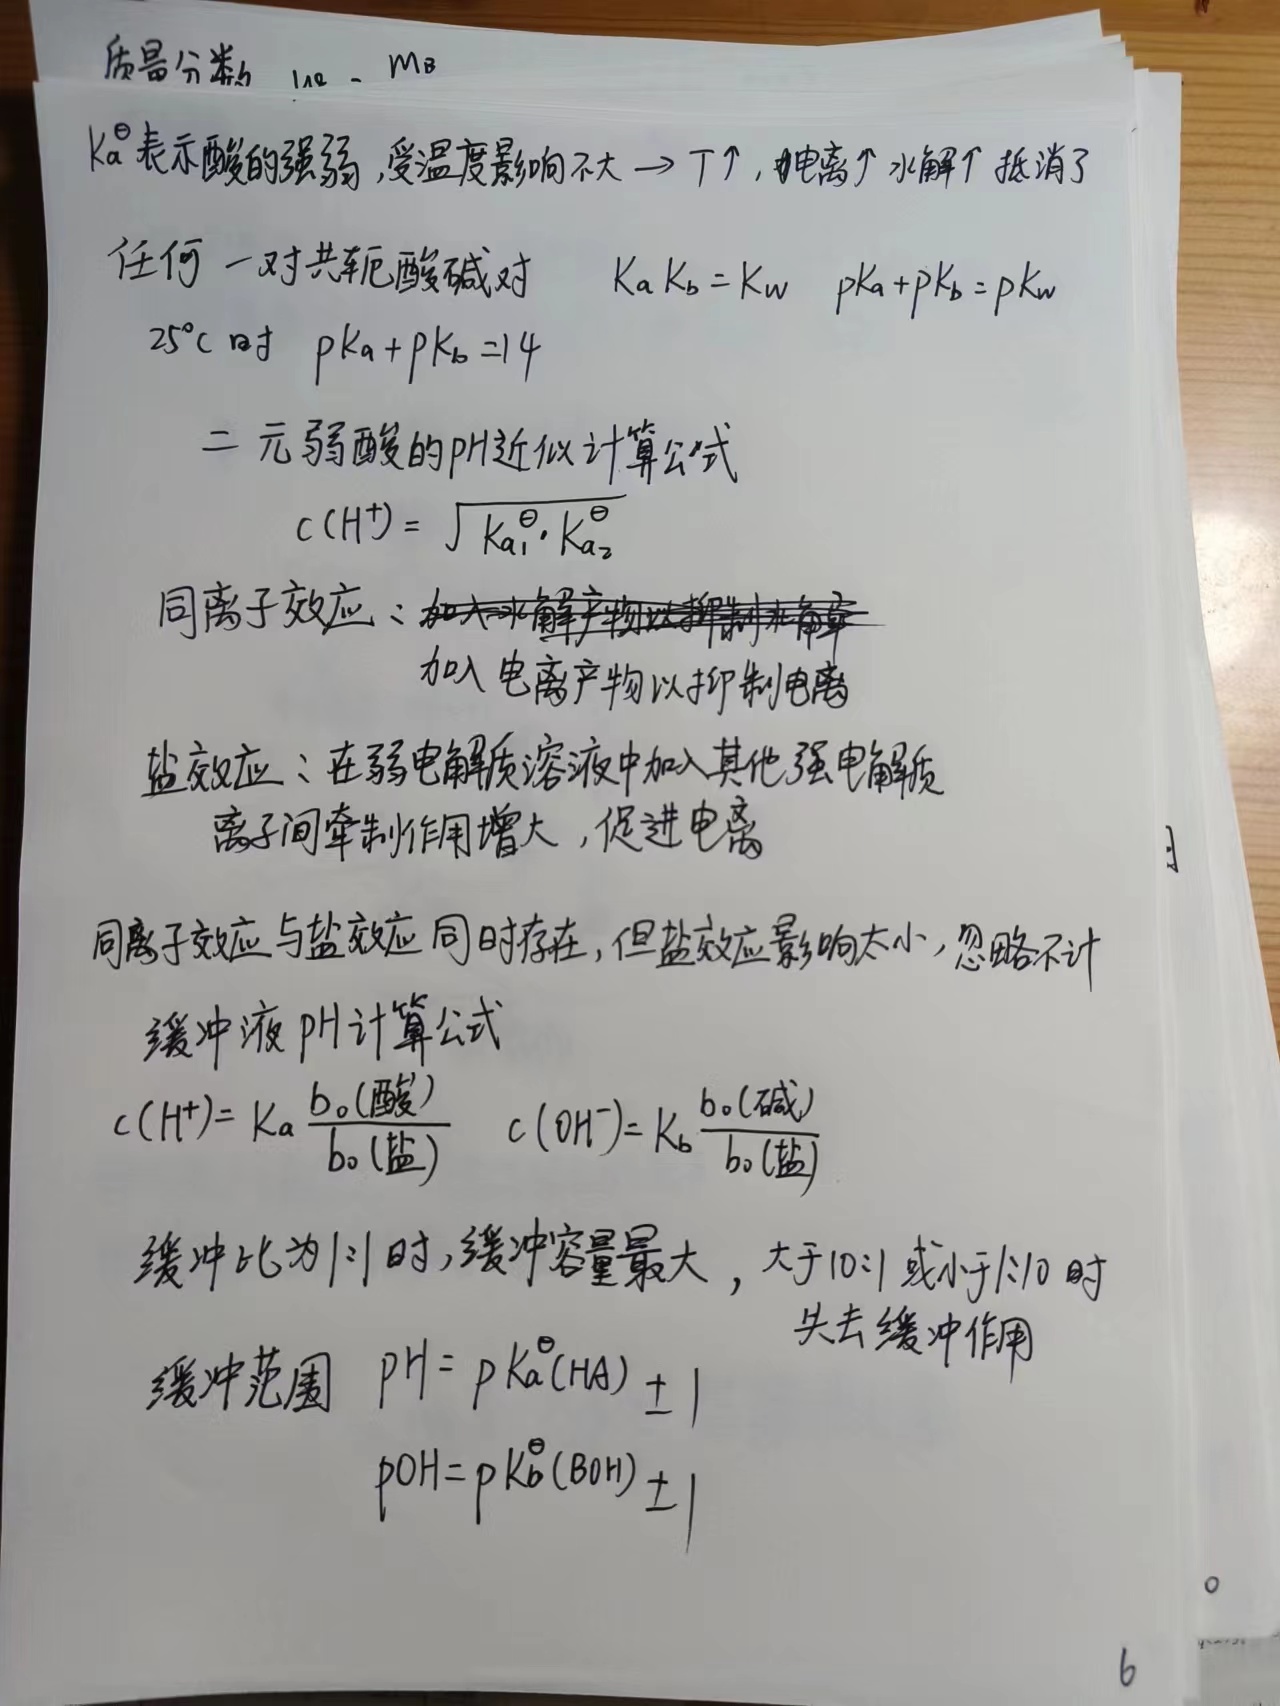 质量分数 mB
Ka⊖表示酸的强弱,受温度影响不大→T↑,电离↑水解↑抵消了
任何一对共轭酸碱对 KaKb=Kw pKa+pKb=pKw
25°C时 pKa+pKb=14
二元弱酸的pH近似计算公式
c(H⁺)=√Ka₁⊖·Ka₂⊖
同离子效应:加入水解产物以抑制水解
加入电离产物以抑制电离
盐效应:在弱电解质溶液中加入其他强电解质
离子间牵制作用增大,促进电离
同离子效应与盐效应同时存在,但盐效应影响太小,忽略不计
缓冲液pH计算公式
c(H⁺)=Ka b₀(酸)/b₀(盐) c(OH⁻)=Kb b₀(碱)/b₀(盐)
缓冲比为1:1时,缓冲容量最大,大于10:1或小于1:10时
失去缓冲作用
缓冲范围 pH=pKa⊖(HA)±1
pOH=pKb⊖(BOH)±1
6